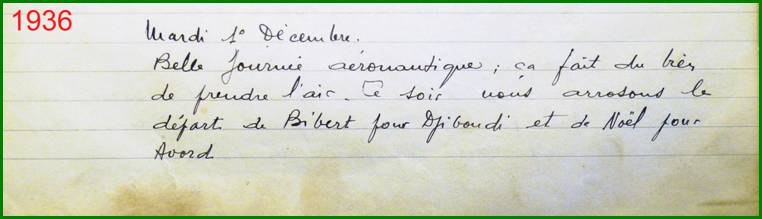 1936
Mardi 1° Décembre.
Belle Journée aéronautique ; ça fait du bien
de prendre l'air. Ce soir nous arrosons le
départ de Bibert pour Djiboudi et de Noël pour
Avord